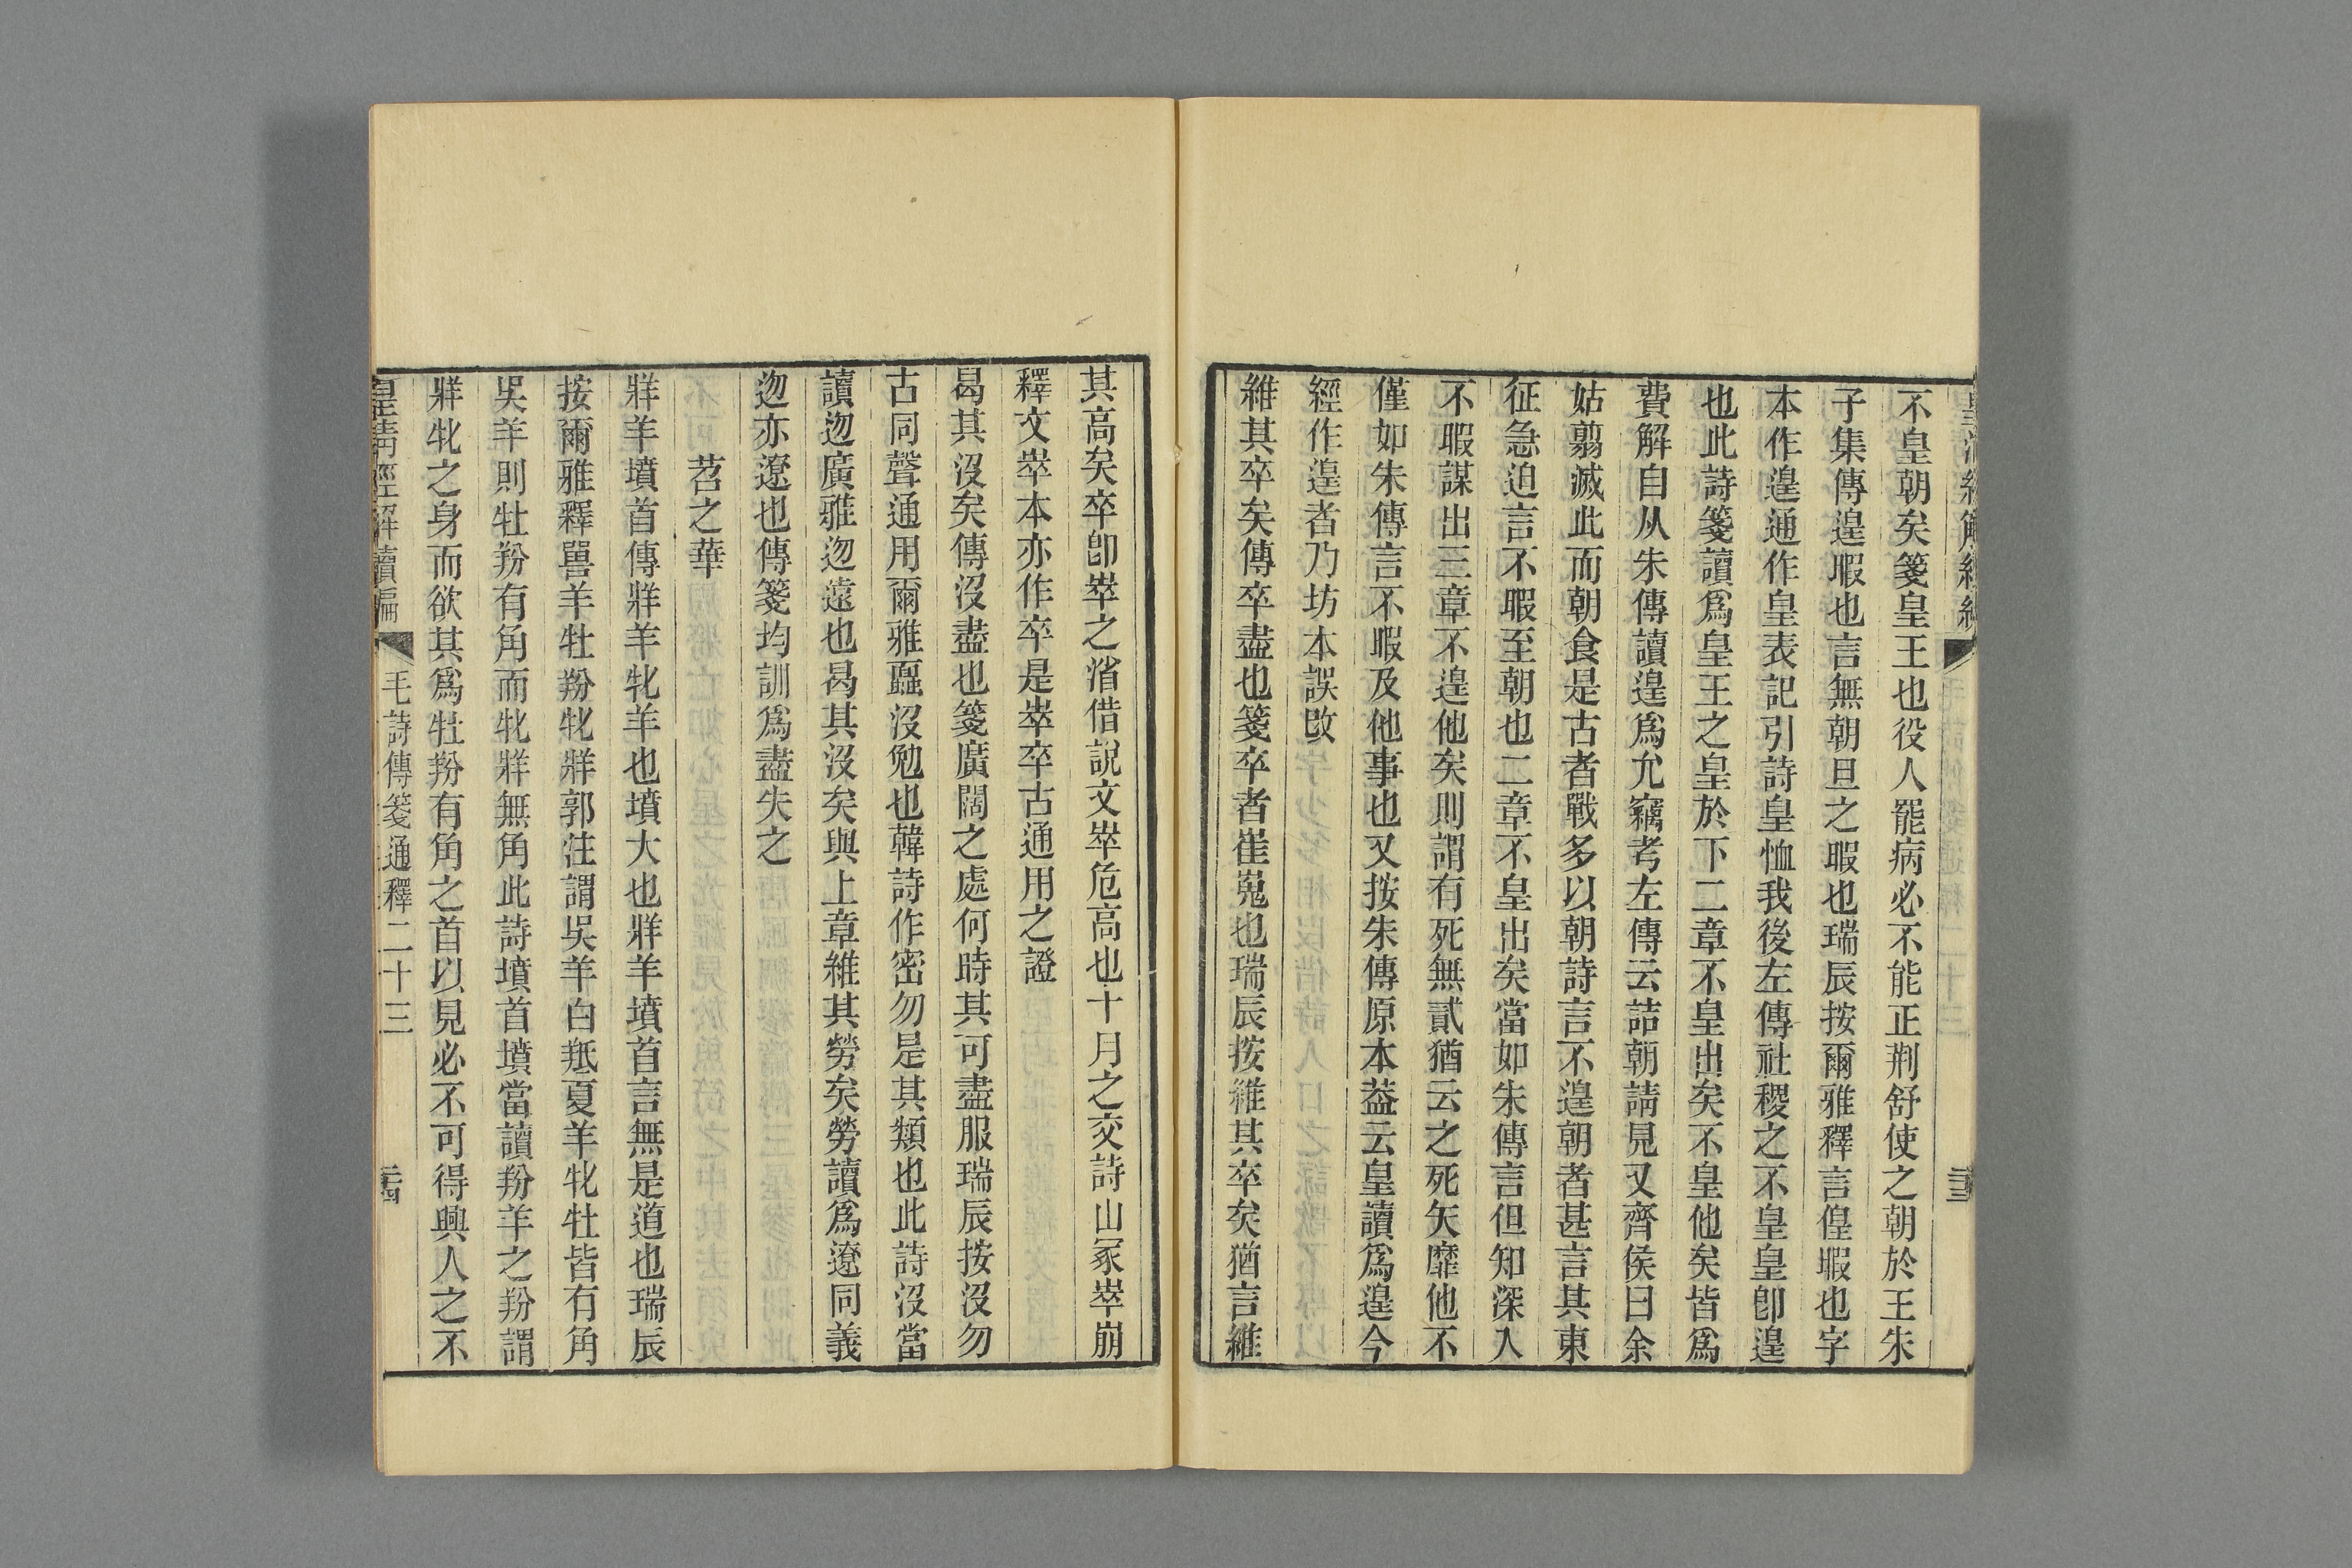 不皇朝矣箋皇王也役人罷病必不能正荆舒使之朝於王朱
子集傳遑暇也言無朝旦之暇也瑞辰按爾雅釋言偟暇也字
本作遑通作皇表記引詩皇恤我後左傳社稷之不皇皇卽遑
也此詩箋讀爲皇王之皇於下二章不皇出矣不皇他矣皆爲
費解自从朱傳讀遑爲允竊考左傳云詰朝請見又齊侯曰余
姑翦滅此而朝食是古者戰多以朝詩言不遑朝者甚言其東
征急迫言不暇至朝也二章不皇出矣當如朱傳言但知深入
不暇謀出三章不遑他矣則謂有死無貳猶云之死矢靡他不
僅如朱傳言不暇及他事也又按朱傳原本葢云皇讀爲遑今
經作遑者乃坊本誤改
維其卒矣傳卒盡也箋卒者崔嵬也瑞辰按維其卒矣猶言維
二十三
其高矣卒卽崒之渻借說文崒危高也十月之交詩山冢崒崩
釋文崒本亦作卒是崒卒古通用之證
曷其沒矣傳沒盡也箋廣闊之處何時其可盡服瑞辰按沒勿
古同聲通用爾雅蠠沒勉也韓詩作密勿是其類也此詩沒當
讀迿廣雅迿遠也曷其沒矣與上章維其勞矣勞讀爲遼同義
迿亦遼也傳箋均訓爲盡失之
苕之華
牂羊墳首傳牂羊牝羊也墳大也牂羊墳首言無是道也瑞辰
按爾雅釋嘼羊牡羒牝牂郭注謂吳羊白羝夏羊牝牡皆有角
吳羊則牡羒有角而牝牂無角此詩墳首墳當讀羒羊之羒謂
牂牝之身而欲其爲牡羒有角之首以見必不可得興人之不
皇清經解續編
毛詩傳箋通釋二十三
二十四